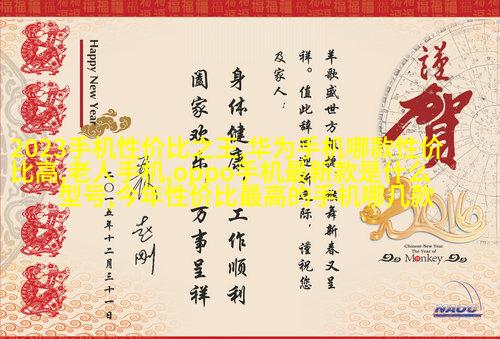 謹贺
2016
Chinese New Year
The Year of
Monkey
NAOC
羊歌盛世方报捷,猴舞新春又呈
祥。值此辞旧迎新之际,谨祝您
及家人:
身体健康,工作顺利
阖家欢乐,万事呈祥
赵刚
二〇一五年十二月三十一日
Happy New Year
2023手机性价比之王,华为手机哪款性价
比高,老人手机,oppo手机最新款是什么
型号,今年性价比最高的手机哪几款